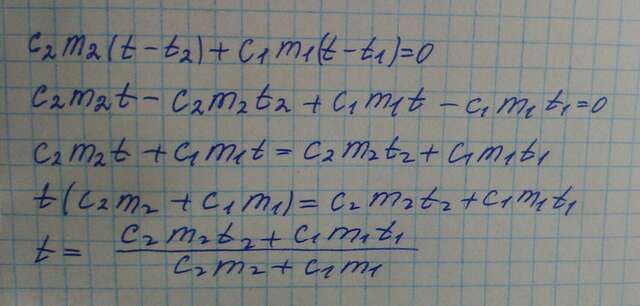 c₂m₂(t-t₂)+c₁m₁(t-t₁)=0
c₂m₂t-c₂m₂t₂+c₁m₁t-c₁m₁t₁=0
c₂m₂t+c₁m₁t=c₂m₂t₂+c₁m₁t₁
t(c₂m₂+c₁m₁)=c₂m₂t₂+c₁m₁t₁
t=(c₂m₂t₂+c₁m₁t₁)/(c₂m₂+c₁m₁)